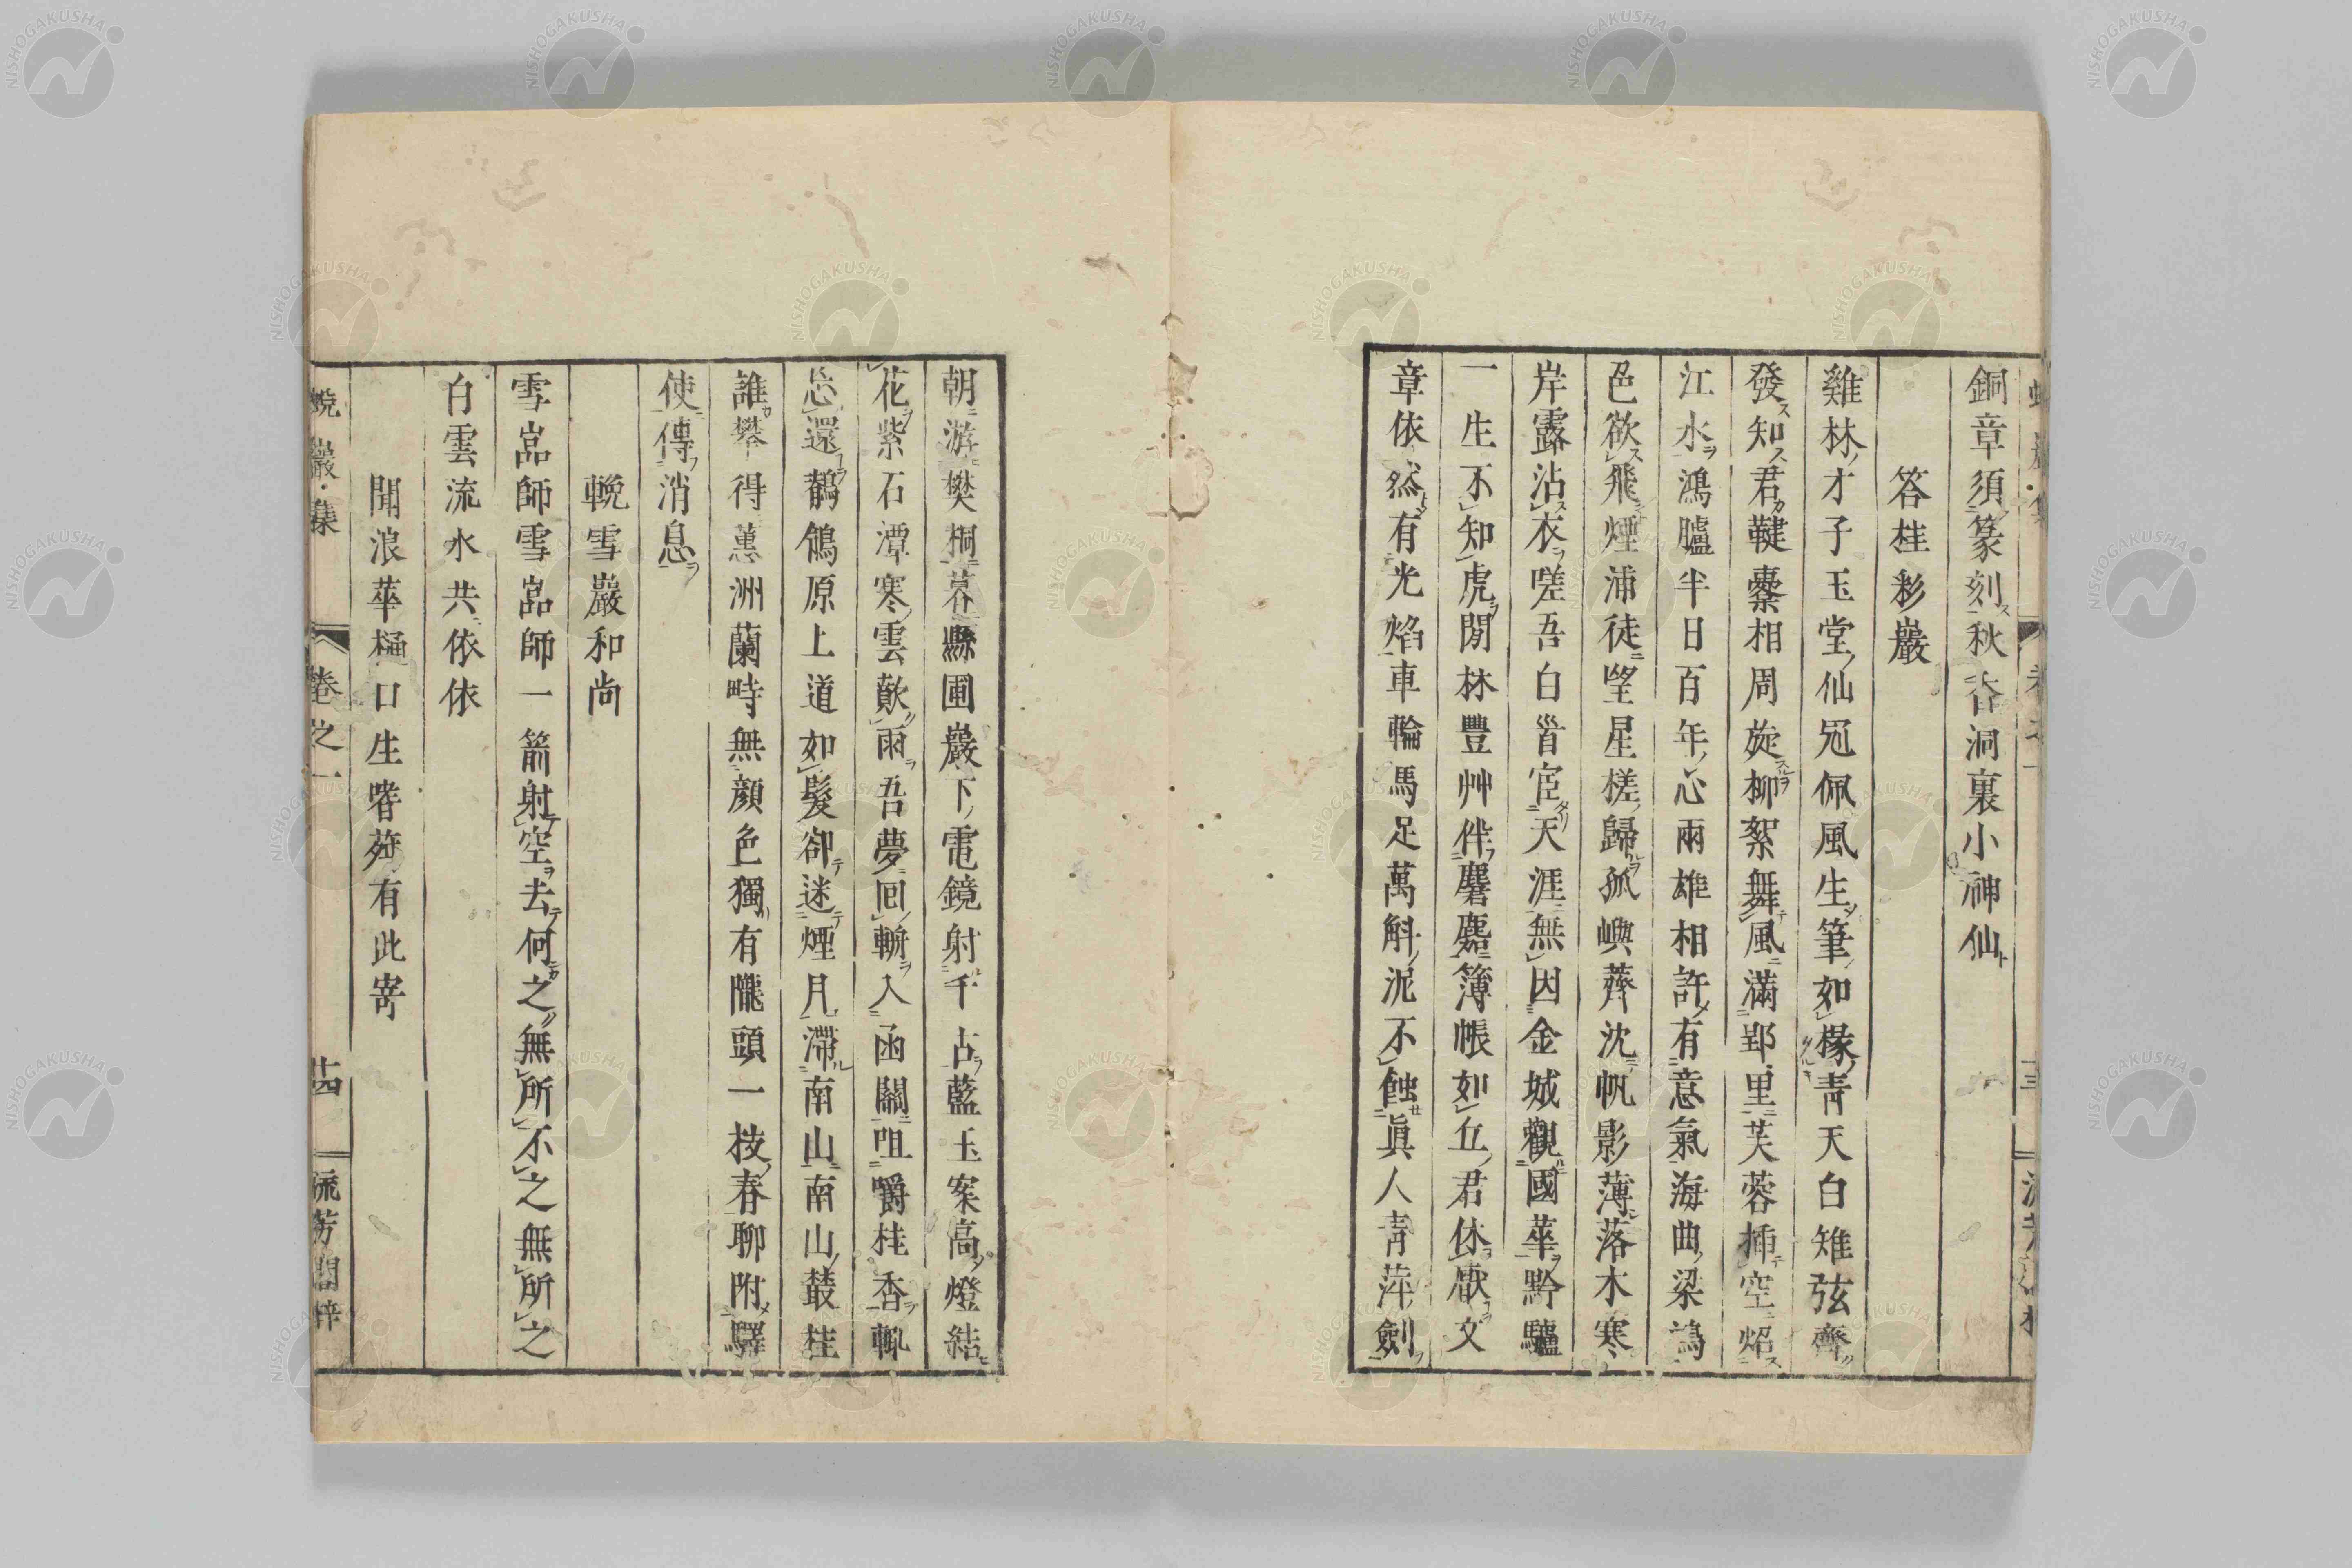 銅章須篆刻秋香洞裏小神仙
答桂彩巖
雞林才子玉堂仙冠佩風生筆如椽青天白雉弦齊
發知君鞬櫜相周旋柳絮舞風滿郢里芙蓉插空焰
江水鴻臚半日百年心兩雄相許有意氣海曲梁鴻
色欲飛煙浦徒望星槎歸孤嶼薺沈帆影薄落木寒
岸露沾衣嗟吾白首宦天涯無因金城觀國華黔驢
一生不知虎閒林豐艸伴麏麚簿帳如丘君休厭文
章依然有光焰車輪馬足萬斛泥不蝕眞人青萍劍
朝游樊桐暮縣圃巖下電鏡射千古藍玉案高燈結
花紫石潭寒雲歕雨吾夢回斬入函關咀嚼桂香輒
忘還鶺鴒原上道如髮卻迷煙月滯南山南山叢桂
誰攀得蕙洲蘭畤無顏色獨有隴頭一枝春聊附驛
使傳消息
輓雪巖和尚
雪嵓師雪嵓師一箭射空去何之無所不之無所之
白雲流水共依依
聞浪華樋口生嗜
有此寄
蛻巖集
卷之一
十四
流芳閣梓
NISHOGAKUSHA